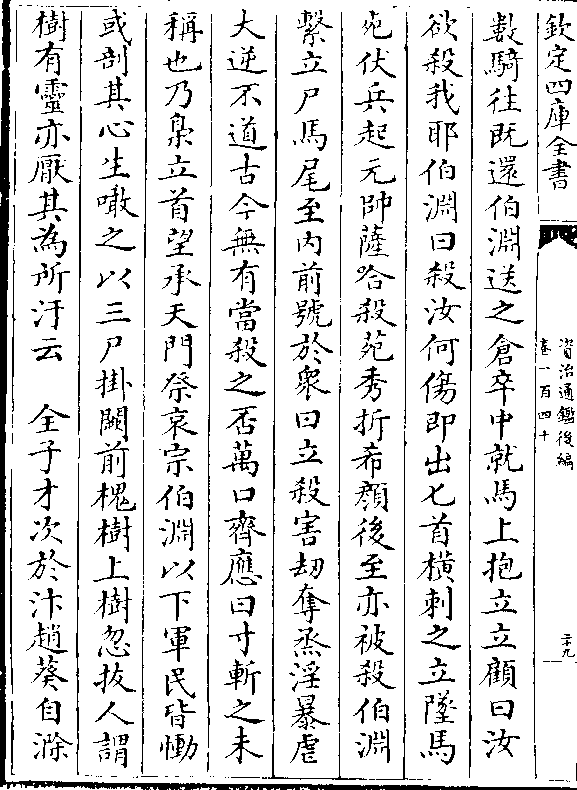 欽定四庫全書
資治通鑑後編
卷一百四十
二十九
數騎往既還伯淵送之倉卒中就馬上抱立立顧曰汝
欲殺我耶伯淵曰殺汝何傷即出匕首橫刺之立墜馬
死伏兵起元帥薩哈殺苑秀折希顔後至亦被殺伯淵
繫立尸馬尾至内前號於衆曰立殺害刼奪烝淫暴虐
大逆不道古今無有當殺之否萬口齊應曰寸斬之未
稱也乃梟立首望承天門祭哀宗伯淵以下軍民皆慟
或剖其心生噉之以三尸掛闕前槐樹上樹忽拔人謂
樹有靈亦厭其為所汙云　全子才次於汴趙葵自滁